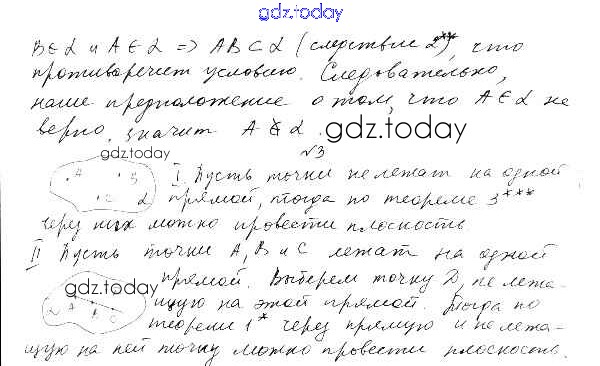 gdz.today
B ∈ α и A ∈ α => AB ⊂ α (следствие 2***), что
противоречит условию. Следовательно,
наше предположение о том, что A ∈ α не
верно, значит A ∉ α.
gdz.today
№3
gdz.today
A B C α
I Пусть точки не лежат на одной
прямой, тогда по теореме 3***
через них можно провести плоскость
II Пусть точки A, B и C лежат на одной
прямой. Выберем точку D, не лежа-
gdz.today
щую на этой прямой. Тогда по
α A B C
теореме 1* через прямую и не лежа-
щую на ней точку можно провести плоскость.